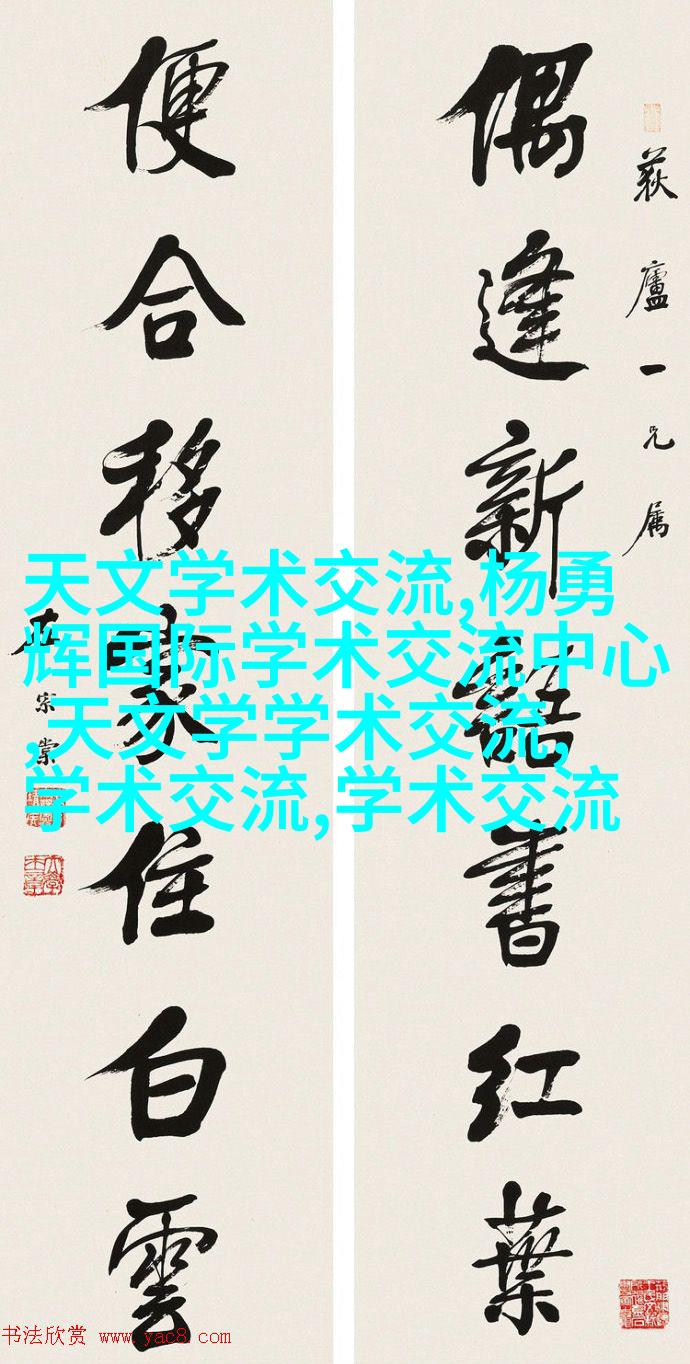 荻廬一兄屬
偶逢新語書紅葉
便合移家住白雲
左宗棠
天文学术交流,杨勇
辉国际学术交流中心
,天文学学术交流,
学术交流,学术交流
书法欣赏 www.yac8.com